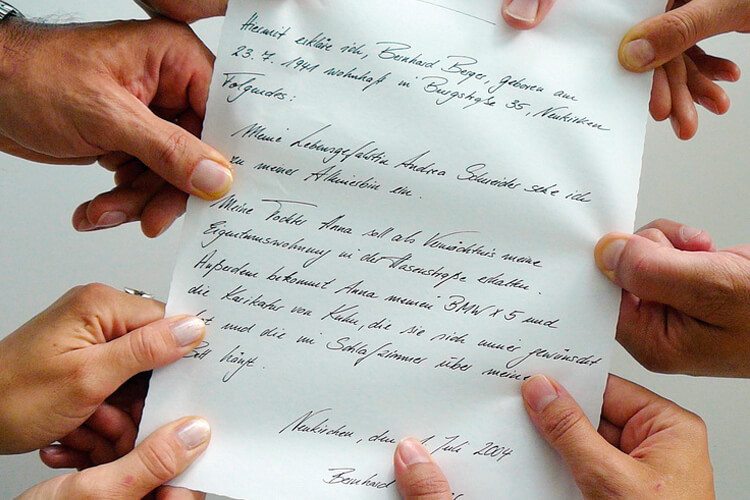 Hiermit erkläre ich, Bernhard Berger, geboren am
23. 7. 1941 wohnhaft in Burgstraße 35, Neukirchen
Folgendes:
Meine Lebensgefährtin Andrea Schneider setze ich
zu meiner Alleinerbin ein.
Meine Tochter Anna soll als Vermächtnis meine
Eigentumswohnung in der Hasenstraße erhalten.
Außerdem bekommt Anna meinen BMW X5 und
die Karikatur von Kuhn, die sie sich immer gewünscht
hat und die im Schlafzimmer über meinem
Bett hängt.
Neukirchen, den 1 Juli 2004
Bernhard